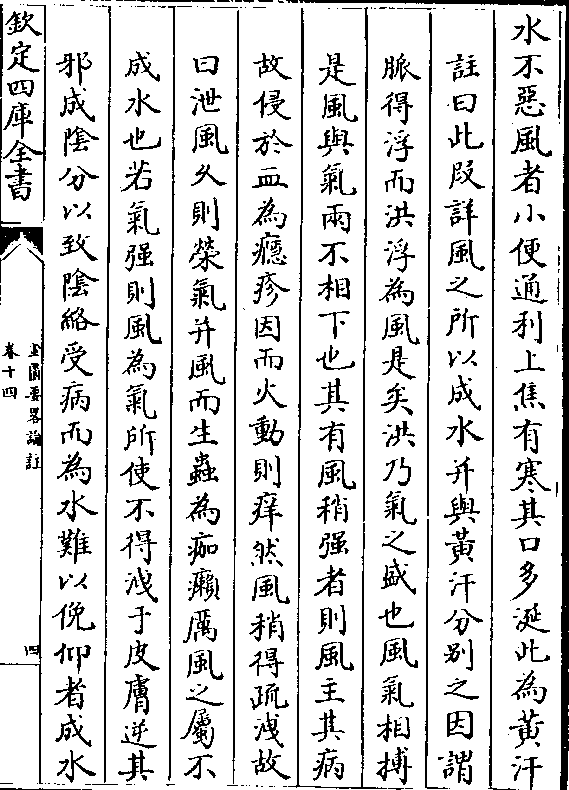 水不惡風者小便通利上焦有寒其口多涎此為黃汗
註曰此段詳風之所以成水并與黃汗分别之因謂
脈得浮而洪浮為風是矣洪乃氣之盛也風氣相搏
是風與氣兩不相下也其有風稍强者則風主其病
故侵於血為癮疹因而火動則痒然風稍得疏洩故
曰泄風乆則榮氣并風而生蟲為痂癩厲風之屬不
成水也若氣强則風為氣所使不得洩于皮膚逆其
邪成陰分以致陰絡受病而為水難以俛仰者成水
欽定四庫全書
金匱要略論註
卷十四
四